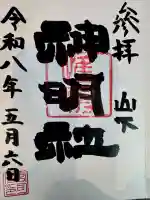 参拝
山下
神明社
令和八年五月六日